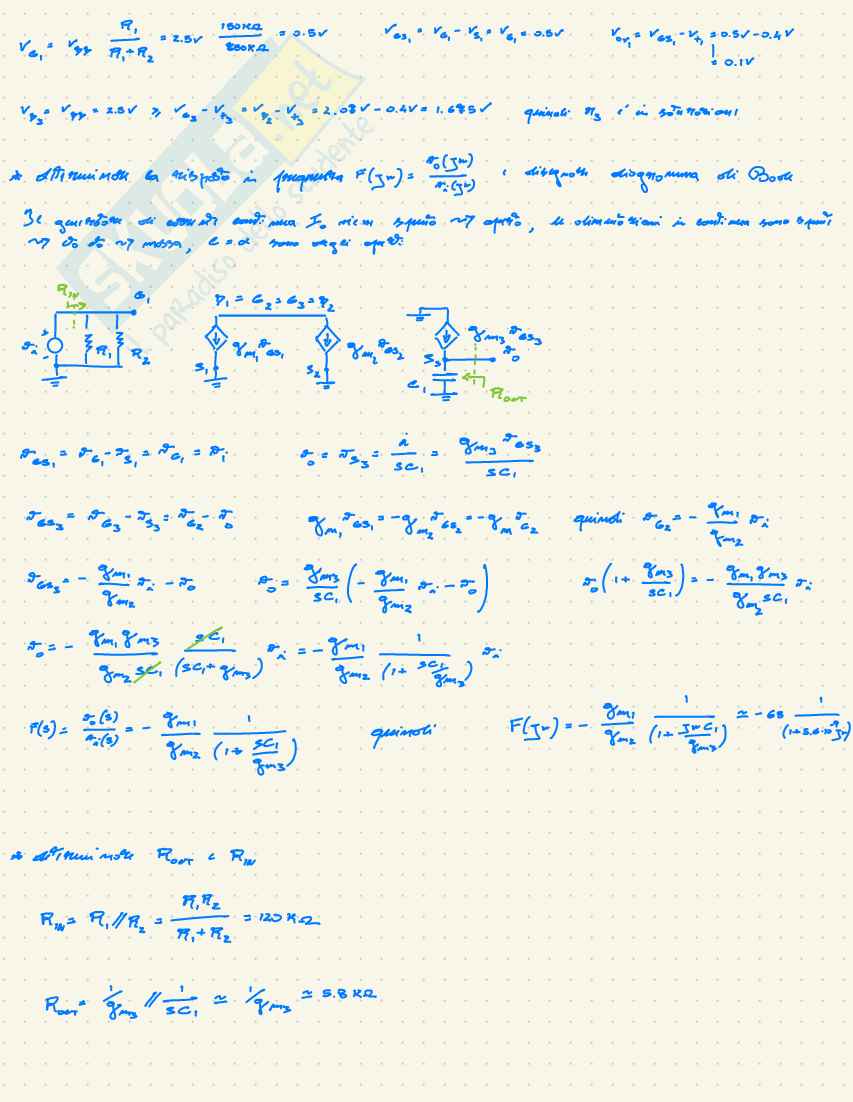 V_G1 = V_DD R1/(R1+R2) = 2.5V 150KΩ/750KΩ = 0.5V V_GS1 = V_G1 - V_S1 = V_G1 = 0.5V V_OV1 = V_GS1 - V_t1 = 0.5V - 0.4V
= 0.1V
V_D3 = V_DD = 2.5V ≥ V_G3 - V_t3 = V_D2 - V_t3 = 2.08V - 0.4V = 1.685V quindi M3 è in saturazione!
* determinare la risposta in frequenza F(jw) = v_o(jw)/v_i(jw) e disegnare diagramma di Bode
Il generatore di corrente continua I_o viene spento ⇝ aperto, le alimentazioni in continua sono spente
⇝ V_DD ⇝ massa, C = ∞ sono degli aperti.
R_IN G1 D1 = G2 = G3 = D2
v_i R1 R2 g_m1 v_GS1 g_m2 v_GS2 g_m3 v_GS3
S1 S2 S3 v_o
C1 R_OUT
v_GS1 = v_G1 - v_S1 = v_G1 = v_i v_o = v_S3 = i/(sC1) = g_m3 v_GS3/(sC1)
v_GS3 = v_G3 - v_S3 = v_G2 - v_o g_m1 v_GS1 = -g_m2 v_GS2 = -g_m v_G2 quindi v_G2 = - g_m1/g_m2 v_i
v_GS3 = - g_m1/g_m2 v_i - v_o v_o = g_m3/(sC1) (- g_m1/g_m2 v_i - v_o) v_o (1 + g_m3/(sC1)) = - g_m1 g_m3/(g_m2 sC1) v_i
v_o = - g_m1 g_m3/(g_m2 sC1) sC1/(sC1 + g_m3) v_i = - g_m1/g_m2 1/(1 + sC1/g_m3) v_i
F(s) = v_o(s)/v_i(s) = - g_m1/g_m2 1/(1 + sC1/g_m3) quindi F(jw) = - g_m1/g_m2 1/(1 + jwC1/g_m3) ≃ -68
* determinare R_OUT e R_IN
R_IN = R1 // R2 = R1R2/(R1+R2) = 120KΩ
R_OUT = 1/g_m3 // 1/sC1 ≃ 1/g_m3 ≃ 5.8KΩ
skuola.net
il paradiso dello studente